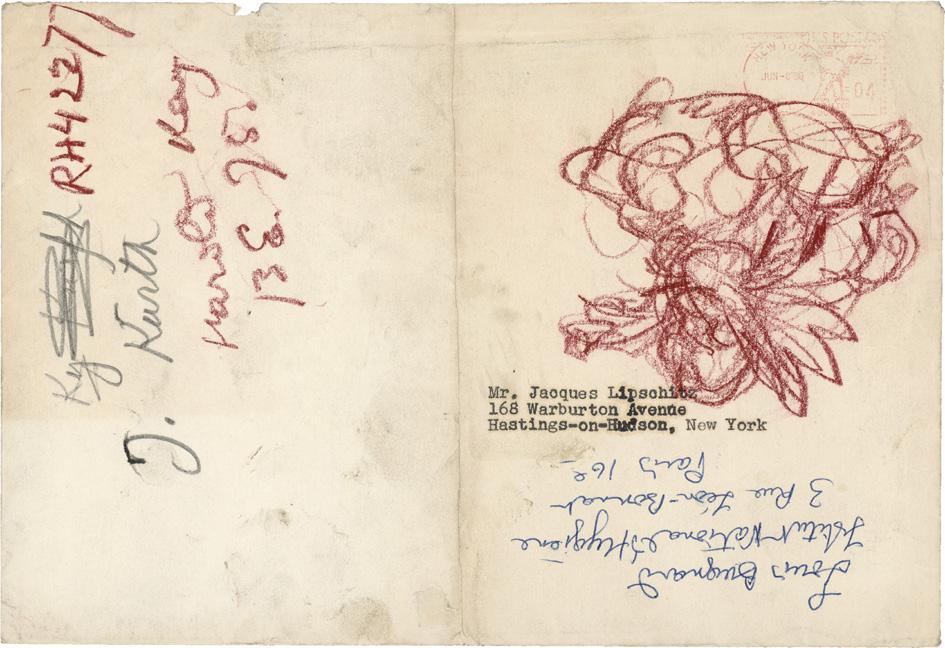 RH42277
Ky
J. Kurth
Kay
13 E 75
U.S. POSTAGE
NEW YORK
04
Mr. Jacques Lipschitz
168 Warburton Avenue
Hastings-on-Hudson, New York
Louis Bugnard
Institut National d'Hygiène
3 Rue Léon-Bonnat
Paris 16e